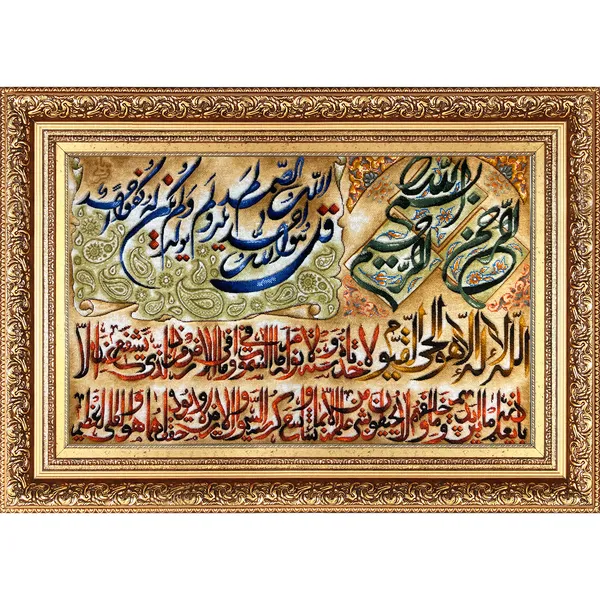 بسم الله الرحمن الرحیم
قل هو الله احد الله الصمد لم یلد ولم یولد ولم یکن له کفوا احد
الله لا اله الا هو الحی القیوم لا تاخذه سنة ولا نوم له ما فی السموات وما فی الارض من ذا الذی یشفع عنده الا
باذنه یعلم ما بین ایدیهم وما خلفهم ولا یحیطون بشیء من علمه الا بما شاء وسع کرسیه السموات والارض ولا یوده حفظهما وهو العلی العظیم